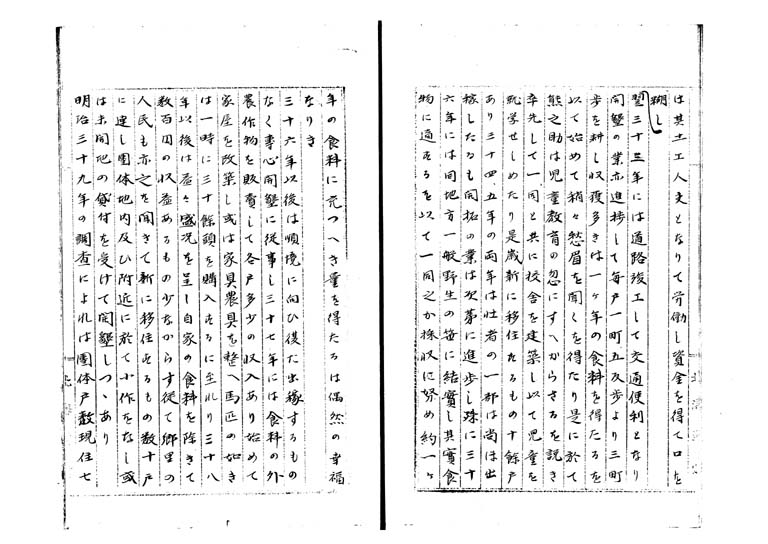 は其土工人夫となりて労働し資金を得て口を
糊し
翌三十三年には道路竣工して交通便利となり
開墾の業亦進捗して毎戸一町五反歩より三町
歩を耕し収穫多きは一ヶ年の食料を得たるを
以て始めて稍々愁眉を開くを得たり是に於て
熊之助は児童教育の忽にすへからさるを説き
率先して一同と共に校舎を建築し以て児童を
就学せしめたり是歳新に移住せるもの十餘戸
あり三十四、五年の両年は壮者の一部は尚ほ出
稼したるも開拓の業は次第に進歩し殊に三十
六年には同地方一般野生の笹に結實し其實食
物に適するを以て一同之か採収に努め約一ヶ
年の食料に充つへき量を得たるは偶然の幸福
なりき
三十六年以後は順境に向ひ復た出稼するもの
なく専心開墾に従事し三十七年には食料の外
農作物を販賣して各戸多少の収入あり始めて
家屋を改築し或は家具農具を整へ馬匹の如き
は一時に三十餘頭を購入するに至れり三十八
年以後は益々盛況を呈し自家の食料を除きて
数百円の収益あるもの少なからす従て郷里の
人民も亦之を聞きて新に移住するもの数十戸
に達し團体地内及ひ附近に於て小作をなし或
は未開地の貸付を受けて開墾しつゝあり
明治三十九年の調査によれは團体戸数現住七